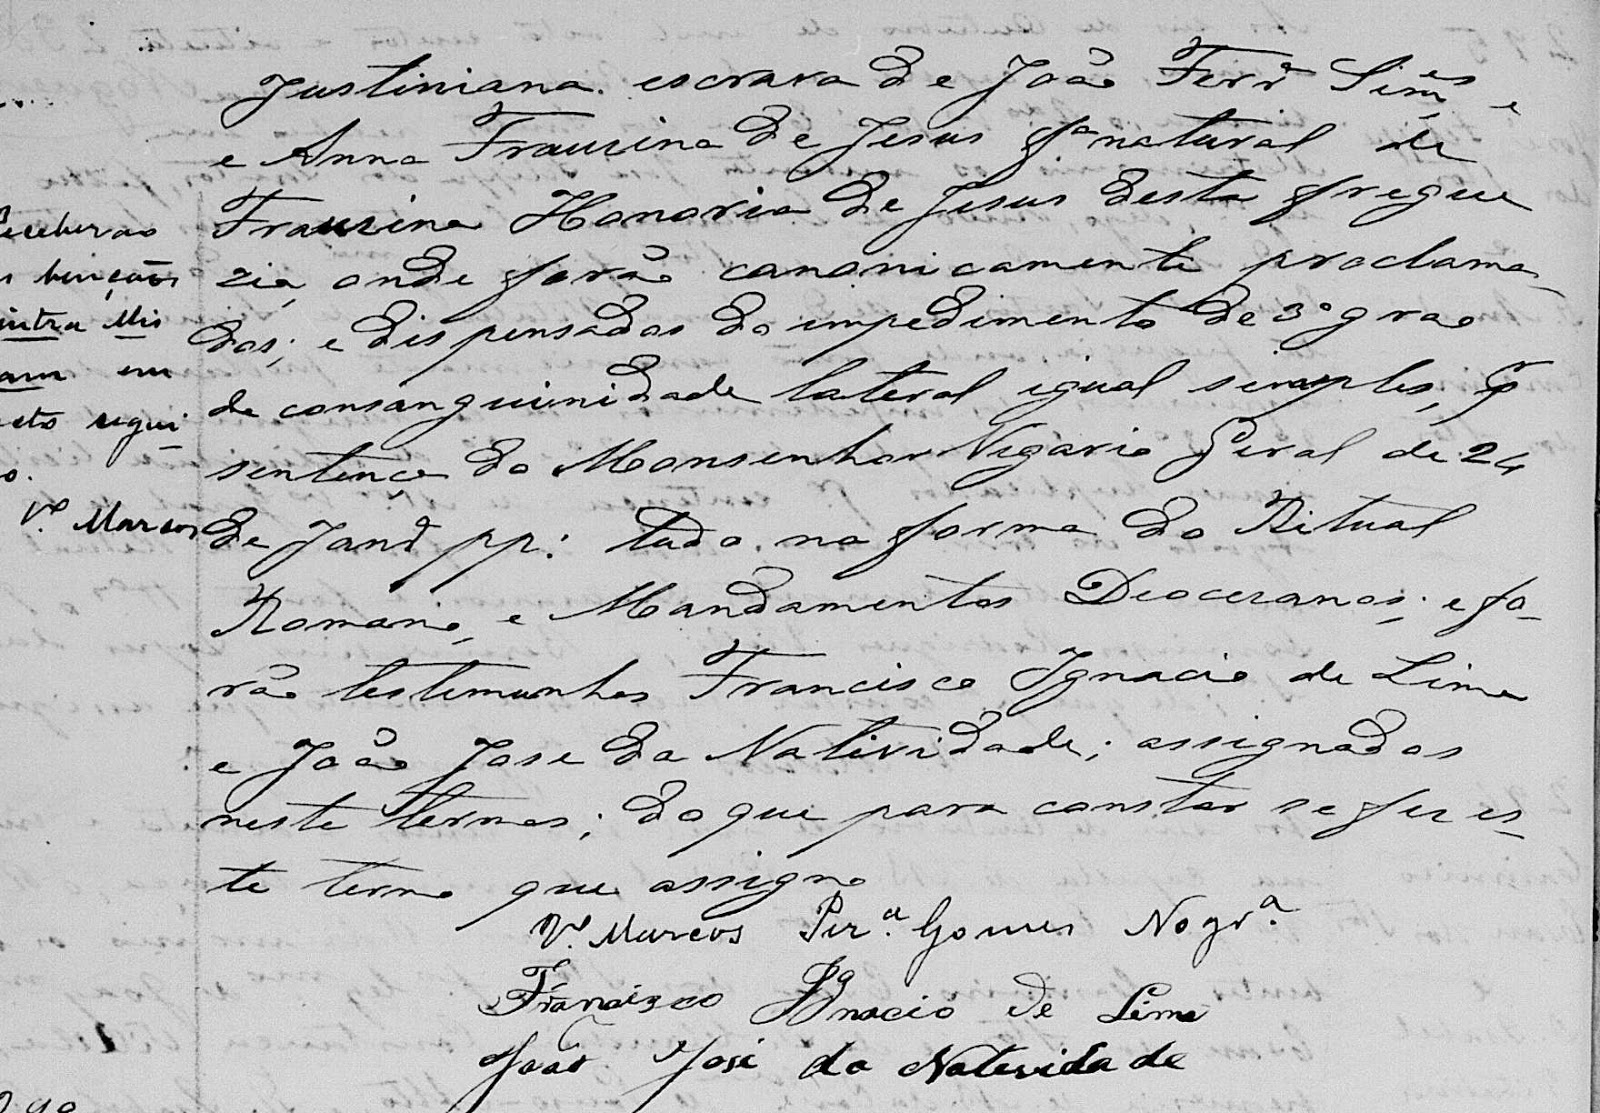 Justiniana. escrava de João Ferrª Simes e
e Anna Frauzina de Jesus fª natural de
Frauzina Honoria de Jesus desta fregue
zia, onde forão canonicamente proclama-
dos; e dispensados do impedimento de 3º grao
de consanguinidade lateral igual simples, p
sentença do Monsenhor Vigario Geral de 24
de Janrº pp: tudo na forma do Ritual
Romano, e Mandamentos Deocezanos; e fo-
rão testemunhas Francisco Ignacio de Lima
e João Jose da Natividade; assignados
neste termos; do que para constar se fez es-
te termo que assigno
Vº Marcos Perª Gomes Nogrª
Francisco Ignacio de Lima
João José da Natevidade
Receberao
s bençaõs
intra Mis
sam em
acto segui-
o.
Vº Marcos